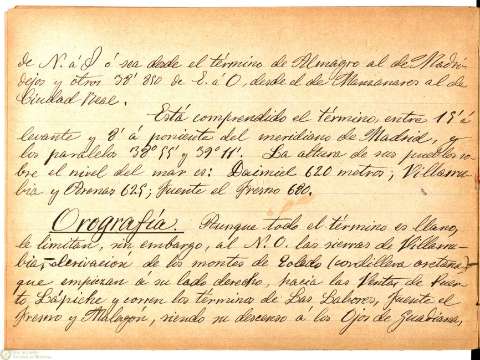 de N. á S ó sea desde el término de Almagro al de Madri-
dejos y otros 38'850 de E. á O, desde el de Manzanares al de
Ciudad Real.
Está comprendido el término, entre 15' á
levante y 8' á poniente del meridiano de Madrid, y
los paralelos 38º 55' y 39º 11'. La altura de sus pueblos so-
bre el nivel del mar es: Daimiel 620 metros; Villarru-
bia y Arenas 625; Fuente el Fresno 680.
Orografía. Aunque todo el término es llano,
le limitan, sin embargo, al N.O. las sierras de Villarru-
bia, derivación de los montes de Toledo (cordillera oretana)
que empiezan á su lado derecho, hacia las Ventas de Puer-
to Lápiche y corren los términos de Las Labores, Fuente el
Fresno y Malagón, siendo su descenso á los Ojos de Guadiana,